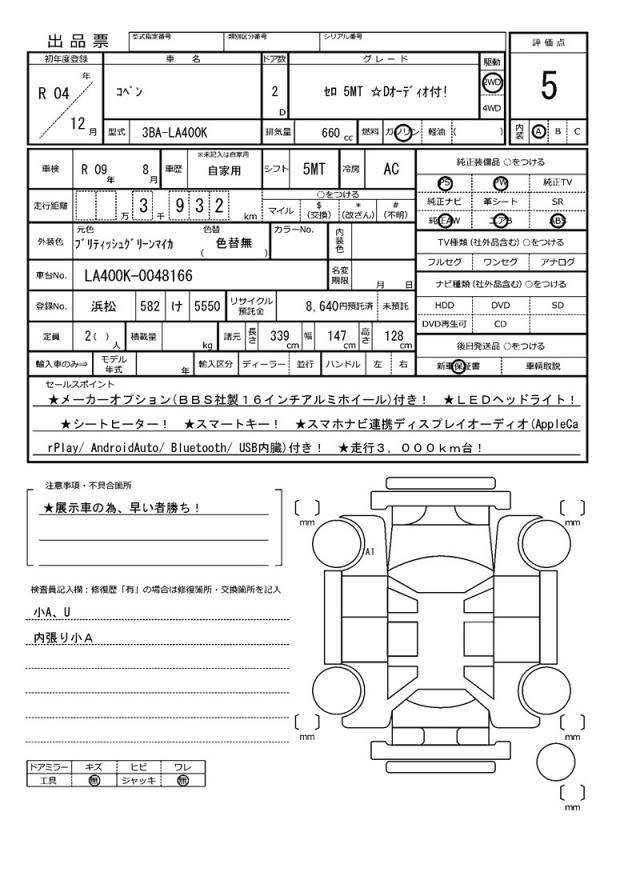 出品票 型式指定番号 類別区分番号 シリアル番号
評価点
初年度登録 車名 ドア数 グレード 駆動
R 04 年 コペン 2 D セロ 5MT ☆Dオーディオ付! 2WD 5
4WD
12 月 型式 3BA-LA400K 排気量 660 cc 燃料 ガソリン 軽油 ( ) 内装 A B C
車検 R 09 年 8 月 車歴 ※未記入は自家用 自家用 シフト 5MT 冷房 AC 純正装備品 ○をつける
PS PW 純正TV
走行距離 万 3 千 9 3 2 km ○をつける 純正ナビ 革シート SR
マイル $(交換) *(改ざん) #(不明) 純正AW エアB ABS
外装色 元色 ブリティッシュグリーンマイカ 色替 色替無 ( ) カラーNo. 内装色 TV種類 (社外品含む) ○をつける
フルセグ ワンセグ アナログ
車台No. LA400K-0048166 名変期限 月 日 ナビ種類 (社外品含む) ○をつける
登録No. 浜松 582 け 5550 リサイクル預託金 8,640円預託済 未預託 HDD DVD SD
DVD再生可 CD
定員 2( ) 人 積載量 kg 諸元 長さ 339 cm 幅 147 cm 高さ 128 cm 後日発送品 ○をつける
輸入車のみ⇒ モデル年式 年 輸入区分 ディーラー 並行 ハンドル 左 右 新車保証書 車輌取説
セールスポイント
★メーカーオプション(BBS社製16インチアルミホイール)付き! ★LEDヘッドライト!
★シートヒーター! ★スマートキー! ★スマホナビ連携ディスプレイオーディオ(AppleCa
rPlay/ AndroidAuto/ Bluetooth/ USB内臓)付き! ★走行3,000km台!
注意事項・不具合箇所
★展示車の為、早い者勝ち!
検査員記入欄:修復歴「有」の場合は修復箇所・交換箇所を記入
小A、U
内張り小A
ドアミラー キズ ヒビ ワレ
工具 無 ジャッキ 無
〔 〕 mm
〔 〕 mm
A1
〔 〕 mm
〔 〕 mm
〔 〕 mm